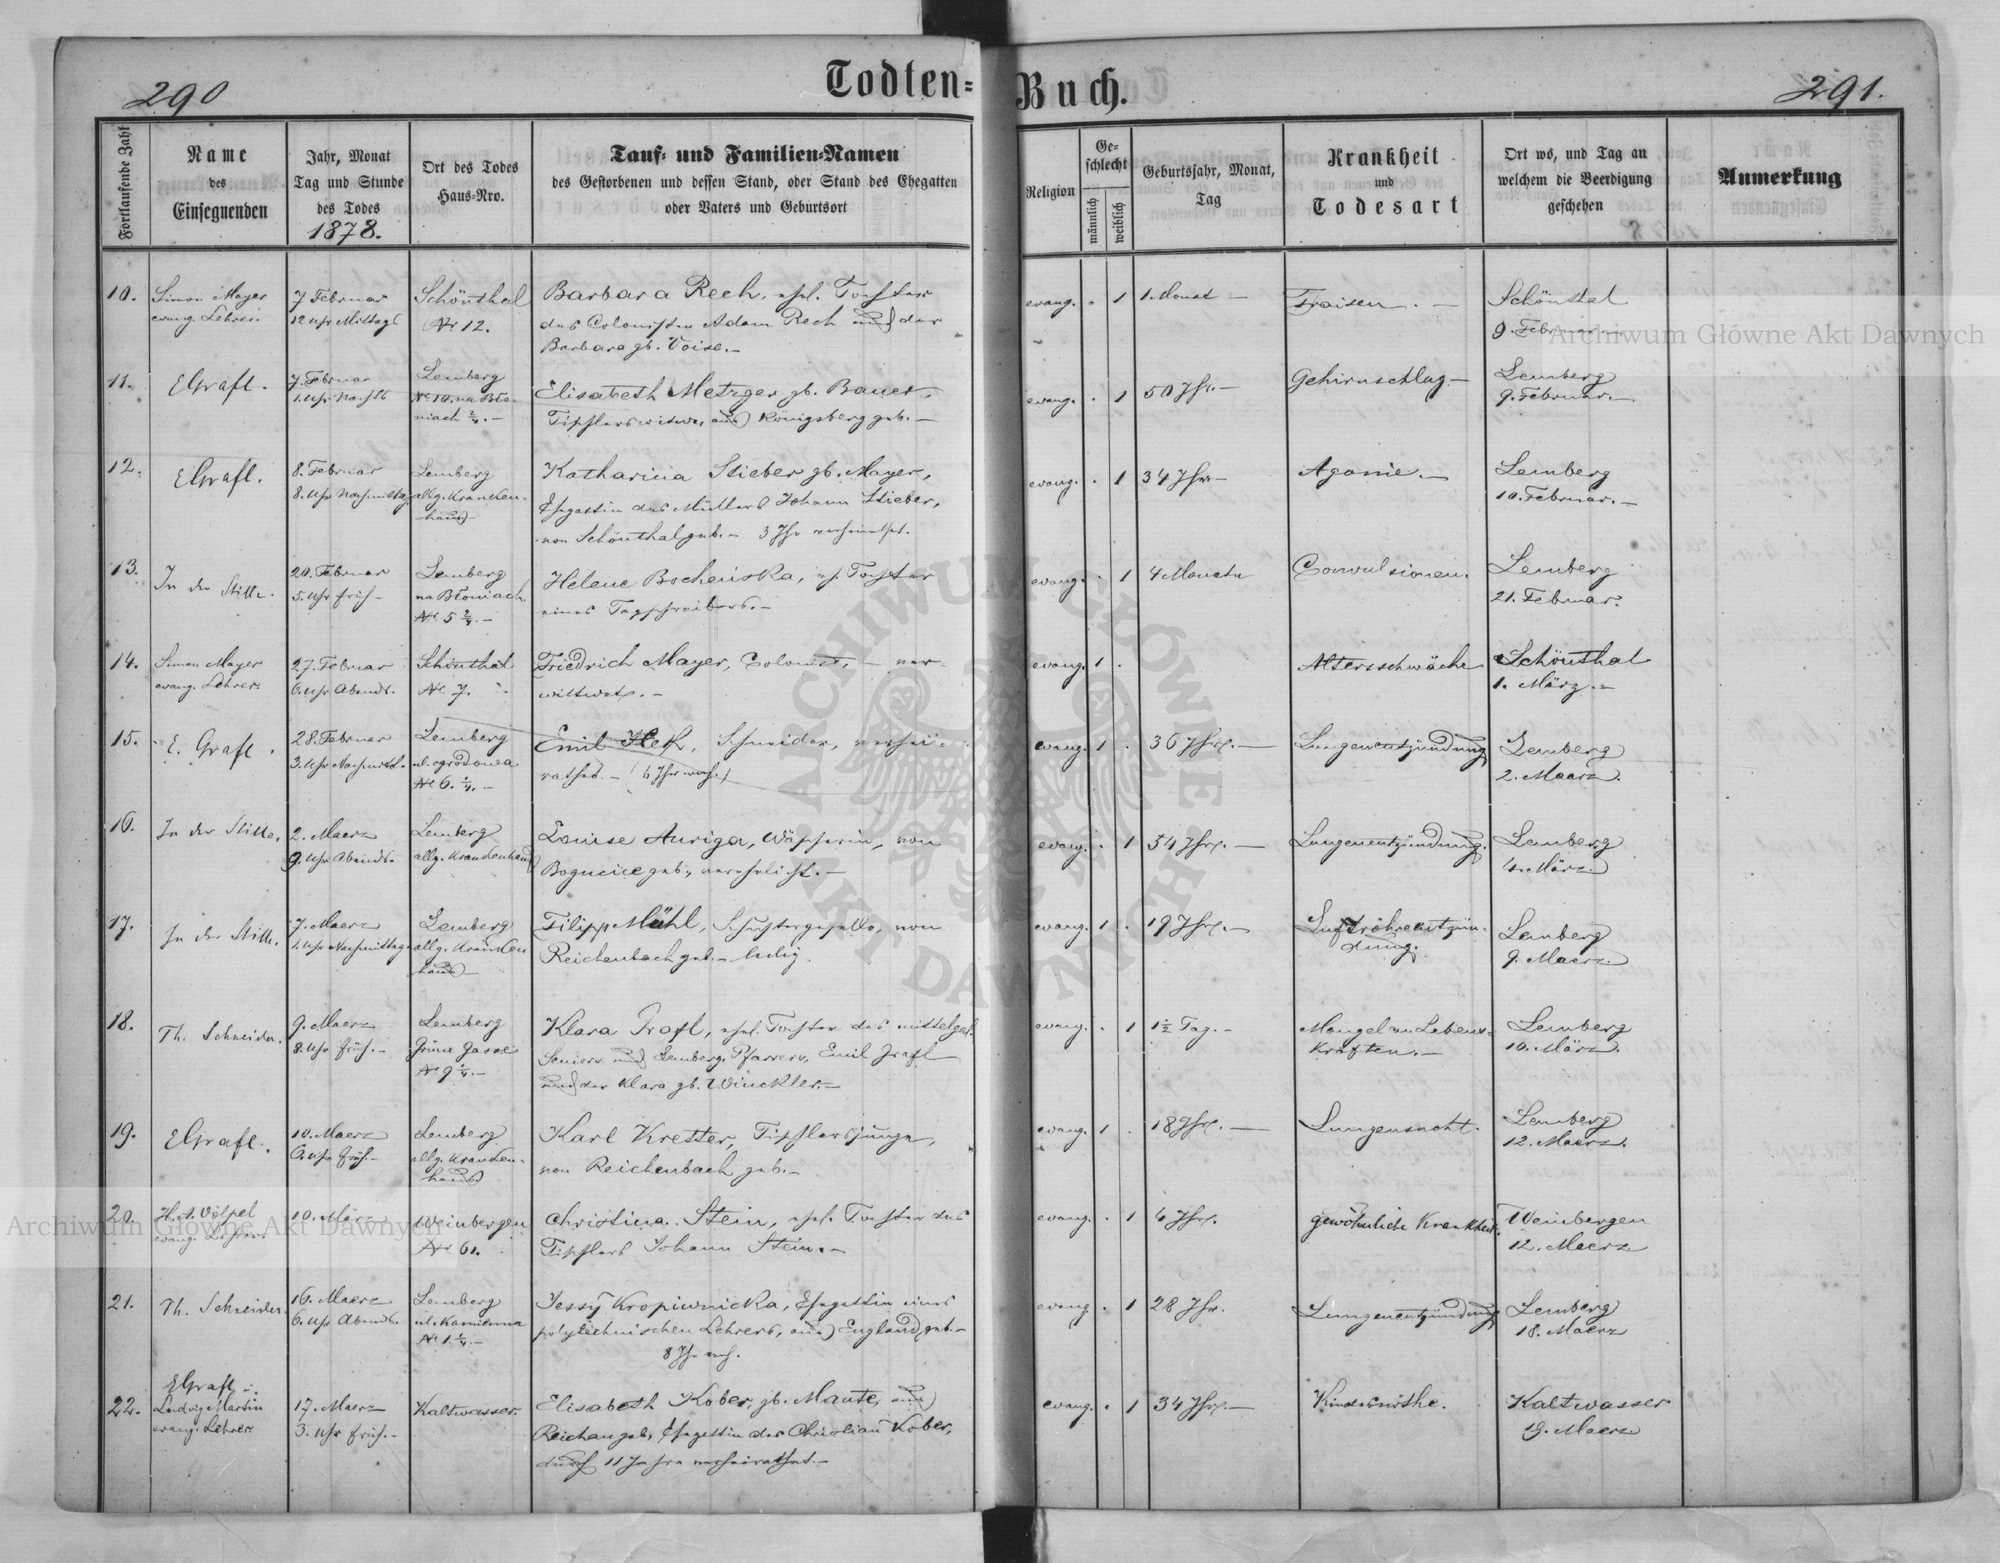 290
Todten=
Buch.
291.
Fortlaufende Zahl
Name
des
Einsegnenden
Jahr, Monat
Tag und Stunde
des Todes
1878.
Ort des Todes
Haus-Nro.
Tauf- und Familien-Namen
des Gestorbenen und dessen Stand, oder Stand des Ehegatten
oder Vaters und Geburtsort
Religion
Ge-
schlecht
männlich
weiblich
Geburtsjahr, Monat,
Tag
Krankheit
und
Todesart
Ort wo, und Tag an
welchem die Beerdigung
geschehen
Anmerkung
10.
Simon Mayer
evang. Lehrer.
7 Februar
12 Uhr Mittags
Schönthal
Nr 12.
Barbara Rech, ehel. Tochter
des Colonisten Adam Rech und der
Barbara gb. Voise.–
evang. . 1
1. Monat –
Fraisen. –
Schönthal
9. Februar.–
11.
EGrafl.
7. Februar
1. Uhr Nachts
Lemberg
Nr 10. na Bło-
niach 2/4.–
Elisabeth Metzger gb. Bauer,
Tischlerswitwe, aus Königsberg geb.–
evang. . 1
50 Jhr.–
Gehirnschlag–
Lemberg
9. Februar.–
12.
EGrafl.
8. Februar
8. Uhr Nachmittag
Lemberg
allg. Kranken-
haus–
Katharina Stieber gb. Mayer,
Ehegattin des Müllers Johann Stieber,
von Schönthal geb.– 3 Jhr verheirathet.
evang. . 1
34 Jhr–
Agonie.–
Lemberg
10. Februar.–
13.
In der Stille.
20. Februar
5. Uhr früh–
Lemberg
na Błoniach
Nr 5 2/4.–
Helene Bocheńska, eh. Tochter
eines Tagschreibers.–
evang. . 1
4 Monate
Convulsionen.
Lemberg
21. Februar.
14.
Simon Mayer
evang. Lehrer
27. Februar
6. Uhr Abends.
Schönthal
Nr 7.
Friedrich Mayer, Colonist, – ver-
wittwet.–
evang. 1 .
Altersschwäche
Schönthal
1. März.–
15.
E. Grafl.
28. Februar
3. Uhr Nachmitt.
Lemberg
ul. ogrodowa
Nr 6. 1/4.–
Emil Hek, Schneider, verhei-
rathet.–
evang. 1 .
36 Jhr.–
Lungenentzündung
Lemberg
2. Maerz.
16.
In der Stille.
2. Maerz
9. Uhr Abends.
Lemberg
allg. Krankenhaus
Louise Auriga, Wäscherin, von
Bogucice geb., verehelicht.–
evang. . 1
54 Jhr.–
Lungenentzündung.
Lemberg
4. März.
17.
In der Stille.
7. Maerz
1. Uhr Nachmittag.
Lemberg
allg. Kranken
haus–
Filipp Mühl, Schustergeselle, von
Reichenbach geb.– ledig.
evang. 1 .
19 Jhr.–
Luftröhrenentzün-
dung.
Lemberg
9. Maerz.
18.
Th. Schneider.
9. Maerz
8. Uhr früh.–
Lemberg
Grüne Gasse
Nr 9 1/4.–
Klara Grafl, ehel. Tochter des mittelgal.
Seniors und Lemberg. Pfarrers, Emil Grafl
und der Klara gb. Winckler.–
evang. . 1
1½ Tag.–
Mangel an Lebens-
kräften.–
Lemberg
10. März.
19.
EGrafl.
10. Maerz
6. Uhr früh.–
Lemberg
allg. Kranken-
haus
Karl Kretter, Tischlerjunge,
von Reichenbach geb.–
evang. 1 .
18 Jhr.–
Lungensucht.
Lemberg
12. Maerz.
20.
evang. Lehrer
10. März
Weinbergen
Nr 61.
Christina Stein, ehel. Tochter des
Tischlers Johann Stein.–
evang. . 1
4 Jhr.
gewöhnliche Krankheit.
Weinbergen
12. Maerz
21.
Th. Schneider.
16. Maerz
6. Uhr Abends.
Lemberg
ul. Kamienna
Nr 1. 1/4.–
Jessy Kropiwnicka, Ehegattin eines
polytechnischen Lehrers, aus England geb.–
8 Jhr verh.
evang. . 1
28 Jhr.
Lungenentzündung
Lemberg
18. Maerz
22.
EGrafl
Ludwig Martin
evang. Lehrer
17. Maerz
3. Uhr früh.–
Kaltwasser.
Elisabeth Kober, gb. Maute, aus
Reichau geb. Ehegattin des Christian Kober,
durch 11 Jahre verheirathet.–
evang. . 1
34 Jhr.–
Kindsnöthe.
Kaltwasser
19. Maerz
Archiwum Główne Akt Dawnych
Archiwum Główne Akt Dawnych
ARCHIWUM GŁÓWNE AKT DAWNYCH